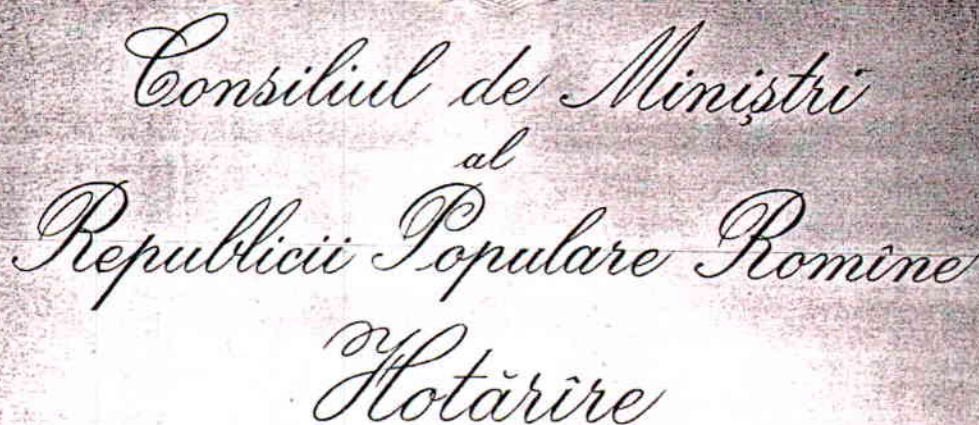 Consiliul de Miniștri
al
Republicii Populare Romîne
Hotărîre